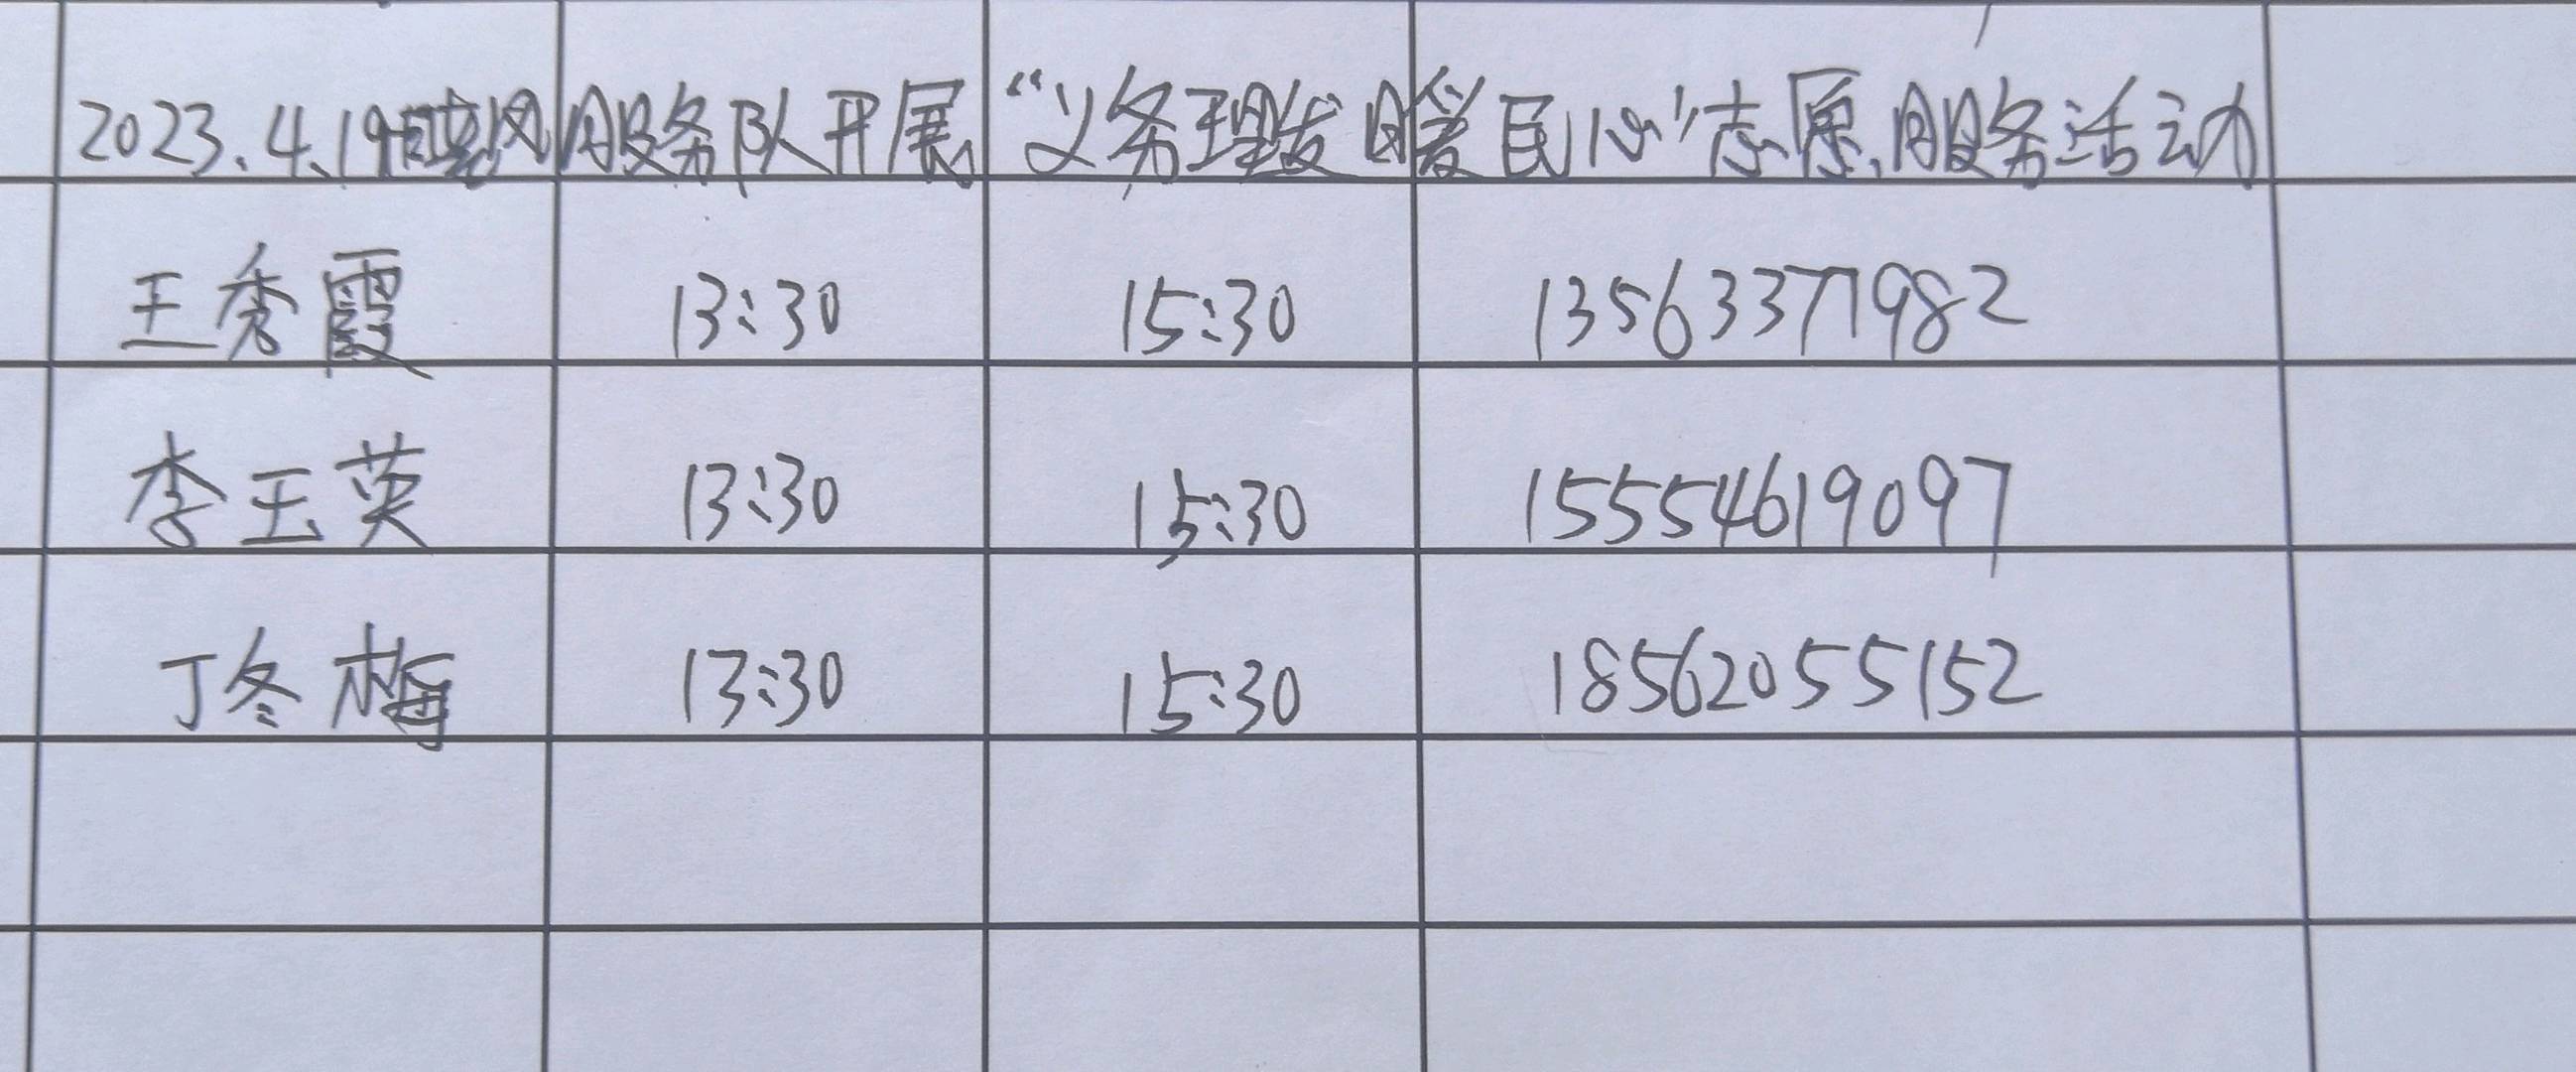 2023.4.19晓风服务队开展“义务理发 暖民心”志愿服务活动
王秀霞 13:30 15:30 13563377982
李玉英 13:30 15:30 15554619097
丁冬梅 13:30 15:30 18562055152